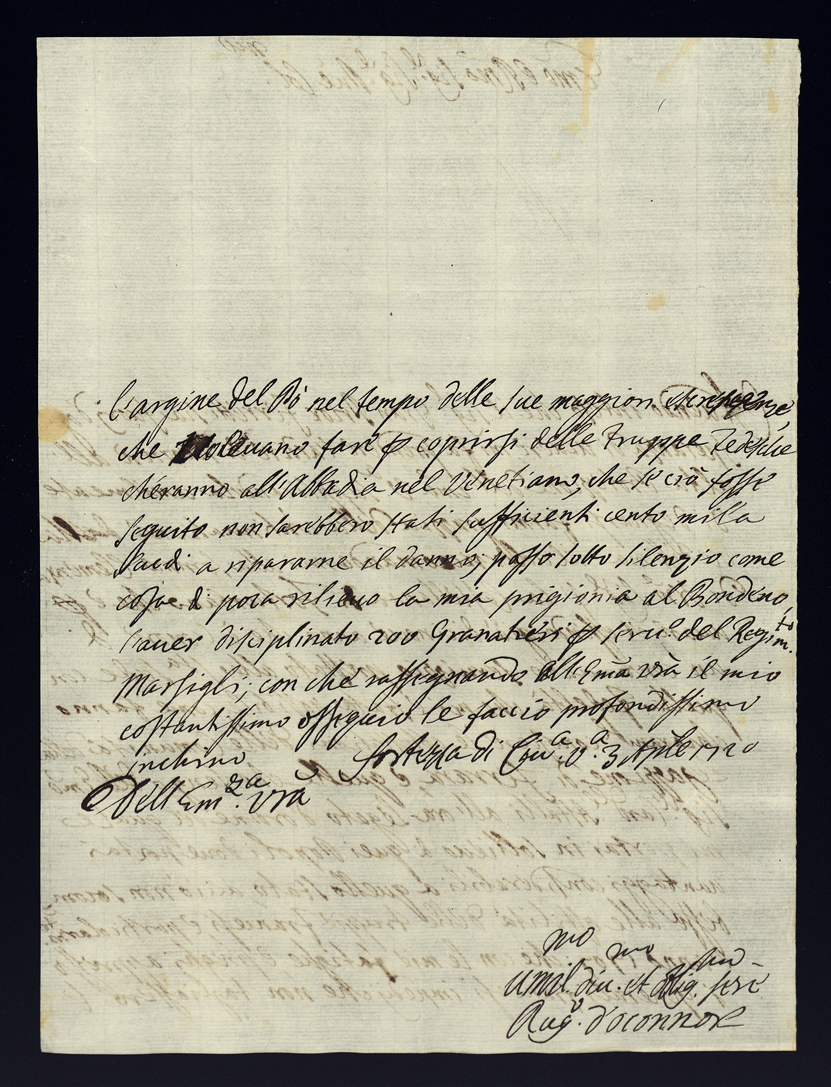 l'argine del Pò nel tempo delle sue maggiori
che voleuano fare ꝑ coprirsi delle Truppe Tedesche
ch'eranno all'Abbadia nel Venetiano, che se ciò fosse
seguito non sarebbero stati sufficienti cento mila
scudi a ripararne il danno; passo sotto silenzio come
cosa di poca rilieuo la mia prigionia al Bondeno,
l'auer disciplinato 200 Granatieri ꝑ seru.º del Regim.to
Marsigli; con che rassegnando all'Emã Vrã il mio
costantissimo ossequio le faccio profondissimo
inchino Fortezza di Ciu.a V.a 3 Aple 1720
Dell'Em.za Vrã
Umil.mo diu.mo et oblig. seru
Rug.º d'oconnor